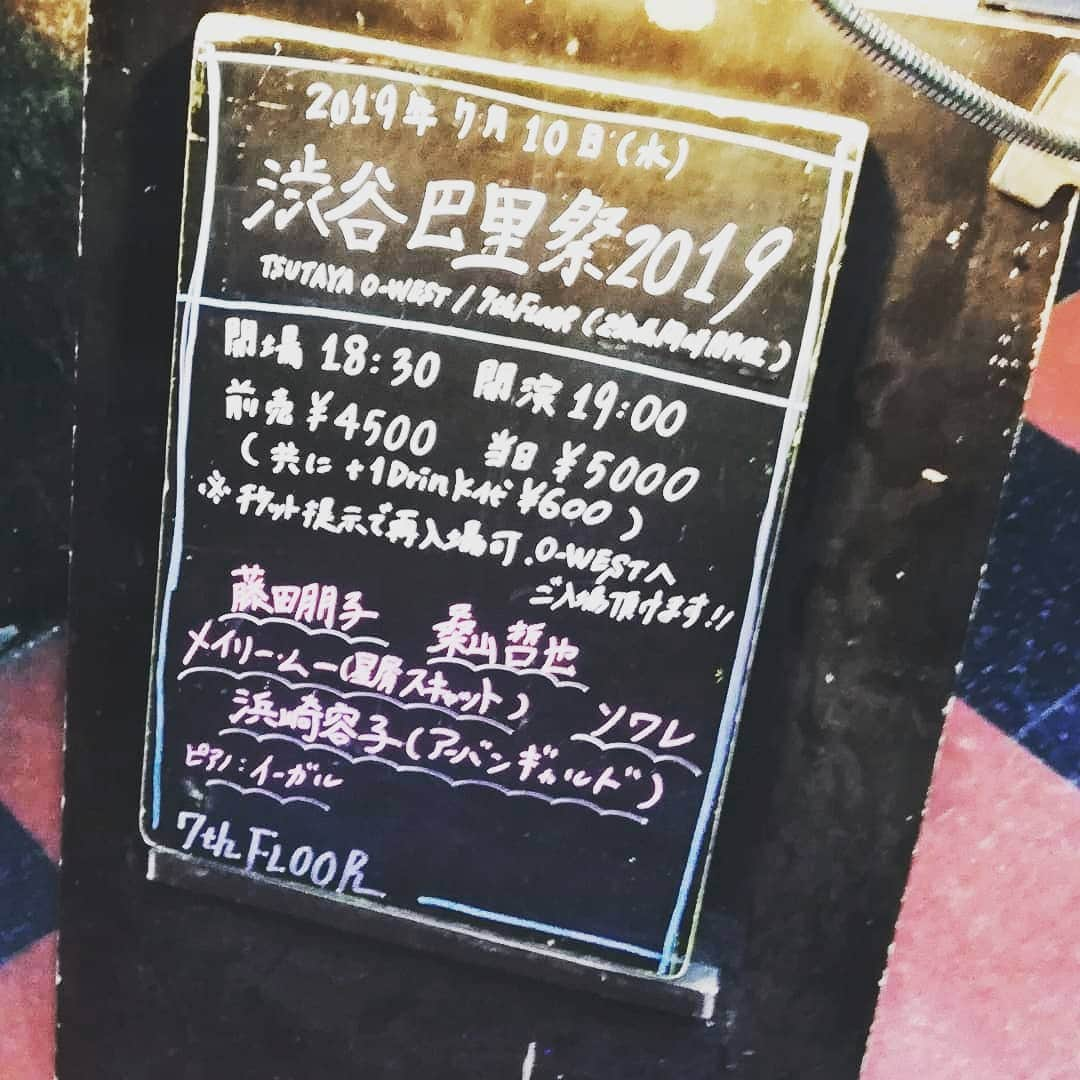 2019年7月10日(水)
渋谷巴里祭2019
TSUTAYA O-WEST / 7thFLOOR (
開場 18:30 開演 19:00
前売 ¥4500 当日 ¥5000
(共に +1Drink代 ¥600)
※チケット提示で再入場可。O-WESTへ
ご入場頂けます!!
藤田朋子 桑山哲也
メイリー・ムー(星屑スキャット) ソワレ
浜崎容子(アーバンギャルド)
ピアノ:イーガル
7th FLOOR